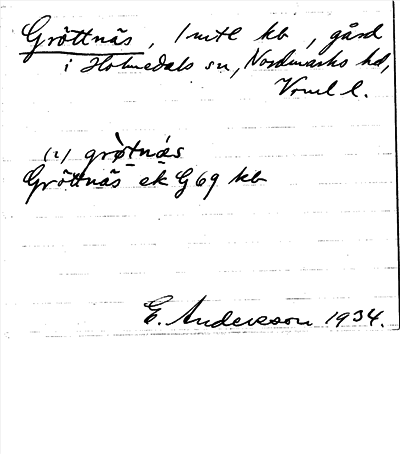 Gröttnäs, 1 mtl kb, gård
i Holmedals sn, Nordmarks hd,
Vrml l.
(1) grø̀tnä́s
Gröttnäs ek G 69 kb
E. Andersson 1934.